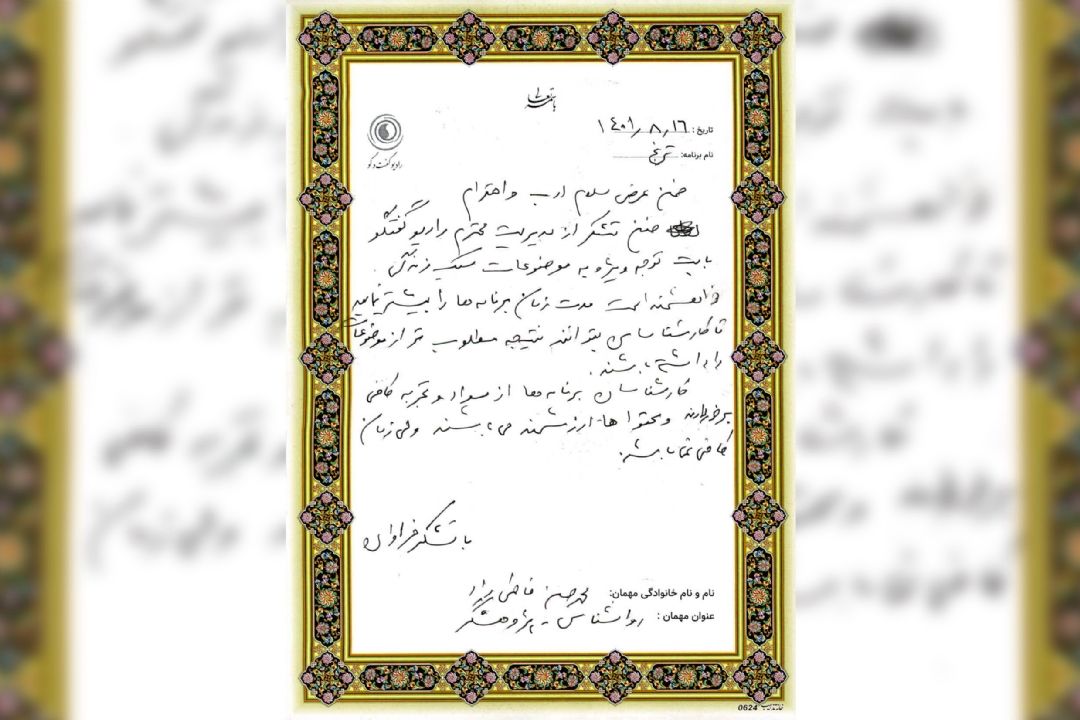 باسمه تعالی
تاریخ: ۱۴۰۱٫۸٫۱۶
نام برنامه: ترنج
رادیو گفت و گو
ضمن عرض سلام ادب و احترام
ضمن تشکر از مدیریت محترم رادیو گفتگو
بابت توجه ویژه به موضوعات سبک زندگی.
خواهشمند است مدت زمان برنامه ها را بیشتر نمایید
تا کارشناسان بتوانند نتیجه مطلوب تر از موضوعات
را داشته باشند.
کارشناسان برنامه ها از سواد و تجربه کافی
برخوردارند و محتوا ها ارزشمند می باشند ولی زمان
کافی نمی باشد.
با تشکر فراوان
نام و نام خانوادگی مهمان: محمدحسن
عنوان مهمان: روانشناس - پژوهشگر
0624